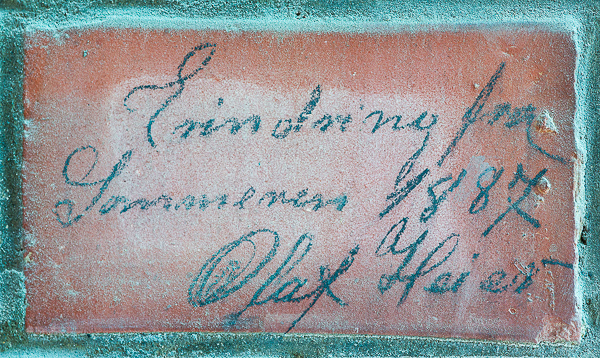 Erindring fra
Sommeren 1887
Olaf Heier